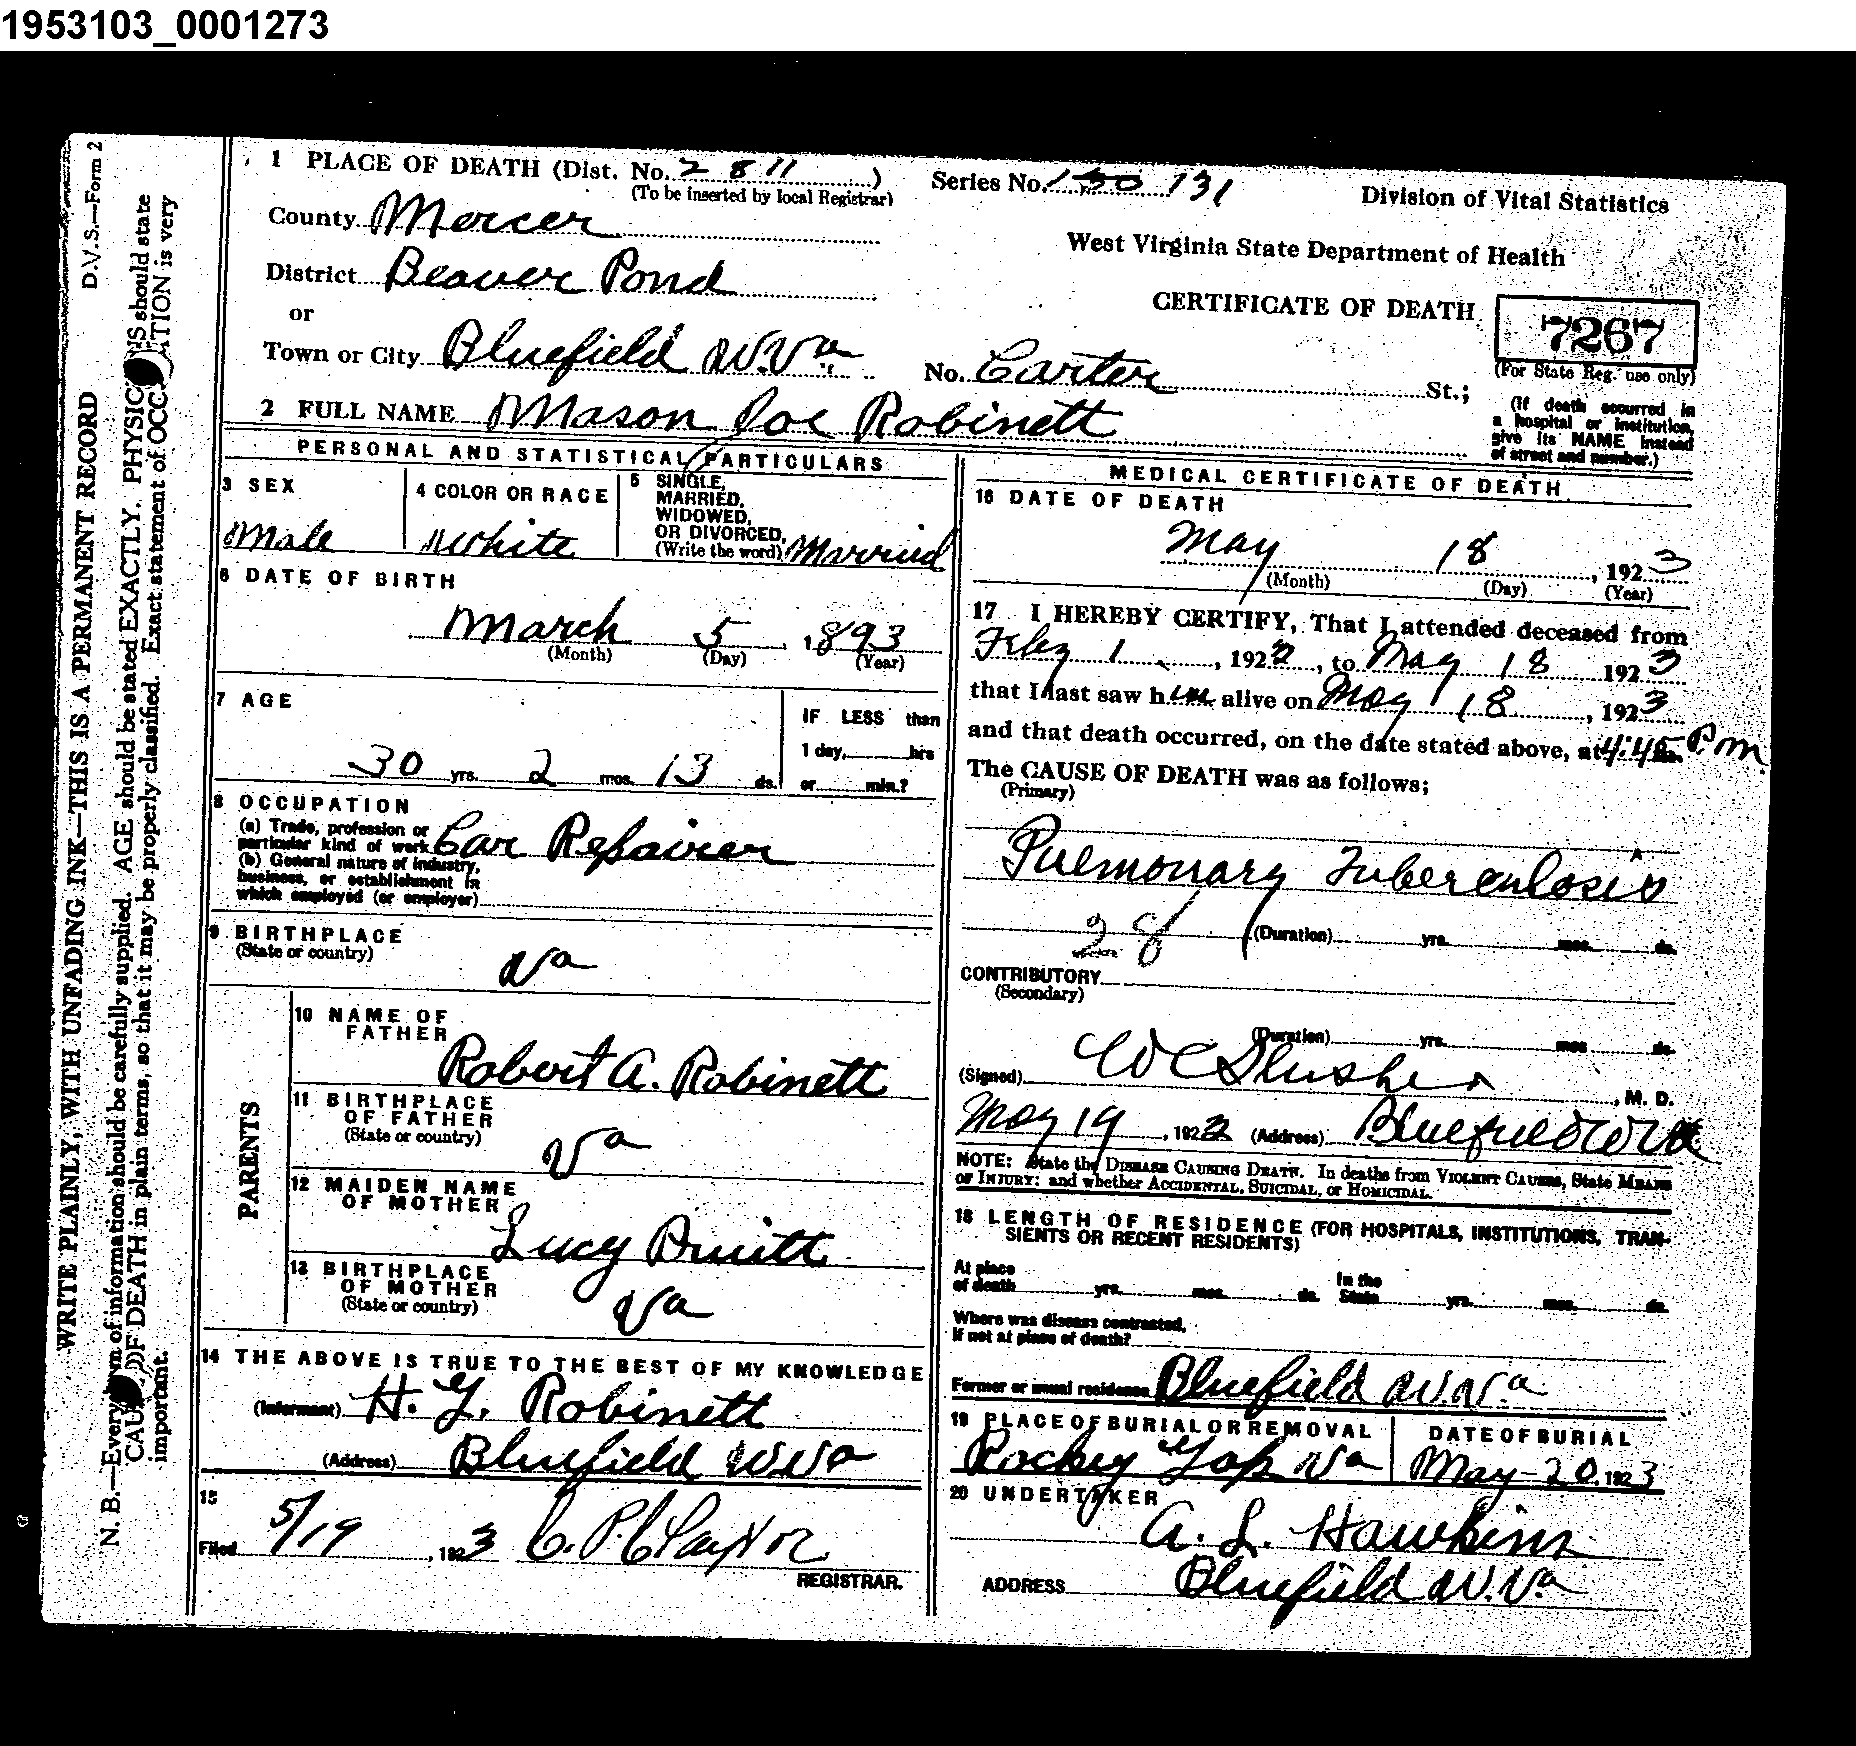 1953103_0001273
D.V.S.—Form 2
WRITE PLAINLY, WITH UNFADING INK—THIS IS A PERMANENT RECORD
N. B.—Every item of information should be carefully supplied. AGE should be stated EXACTLY. PHYSICIANS should state
CAUSE OF DEATH in plain terms, so that it may be properly classified. Exact statement of OCCUPATION is very
important.
1 PLACE OF DEATH (Dist. No. 2811)
(To be inserted by local Registrar)
Series No. 130 131
Division of Vital Statistics
County Mercer
West Virginia State Department of Health
District Beaver Pond
CERTIFICATE OF DEATH
or
7267
(For State Reg. use only)
Town or City Bluefield W.Va
No. Carter St.;
(If death occurred in
a hospital or institution,
give its NAME instead
of street and number.)
2 FULL NAME Mason Poe Robinett
PERSONAL AND STATISTICAL PARTICULARS
3 SEX
Male
4 COLOR OR RACE
White
5 SINGLE,
MARRIED,
WIDOWED,
OR DIVORCED,
(Write the word) Married
6 DATE OF BIRTH
March 5, 1893
(Month) (Day) (Year)
7 AGE
30 yrs. 2 mos. 13 ds.
IF LESS than
1 day, hrs
or min.?
8 OCCUPATION
(a) Trade, profession or
particular kind of work Car Repairer
(b) General nature of industry,
business, or establishment in
which employed (or employer)
9 BIRTHPLACE
(State or country)
Va
PARENTS
10 NAME OF
FATHER
Robert A. Robinett
11 BIRTHPLACE
OF FATHER
(State or country)
Va
12 MAIDEN NAME
OF MOTHER
Lucy Bruitt
13 BIRTHPLACE
OF MOTHER
(State or country)
Va
14 THE ABOVE IS TRUE TO THE BEST OF MY KNOWLEDGE
(Informant) H. Y. Robinett
(Address) Bluefield W Va
15
Filed 5/19, 1923 C. P. Claytor
REGISTRAR.
MEDICAL CERTIFICATE OF DEATH
16 DATE OF DEATH
May 18, 1923
(Month) (Day) (Year)
17 I HEREBY CERTIFY, That I attended deceased from
Feby 1, 1922, to May 18 1923
that I last saw him alive on May 18, 1923
and that death occurred, on the date stated above, at 4:45 P.m.
The CAUSE OF DEATH was as follows;
(Primary)
Pulmonary Tuberculosis
28 (Duration) yrs. mos. ds.
CONTRIBUTORY
(Secondary)
(Duration) yrs. mos. ds.
(Signed) W C Slusher, M. D.
May 19, 1922 (Address) Bluefield W Va
NOTE: State the DISEASE CAUSING DEATH. In deaths from VIOLENT CAUSES, State MEANS
OF INJURY: and whether ACCIDENTAL, SUICIDAL, or HOMICIDAL.
18 LENGTH OF RESIDENCE (FOR HOSPITALS, INSTITUTIONS, TRAN-
SIENTS OR RECENT RESIDENTS)
At place
of death yrs. mos. ds.
In the
State yrs. mos. ds.
Where was disease contracted,
If not at place of death?
Former or usual residence Bluefield W.Va
19 PLACE OF BURIAL OR REMOVAL
Rockey Gap Va
DATE OF BURIAL
May 20, 1923
20 UNDERTAKER
A. L. Hawkins
ADDRESS Bluefield W.Va